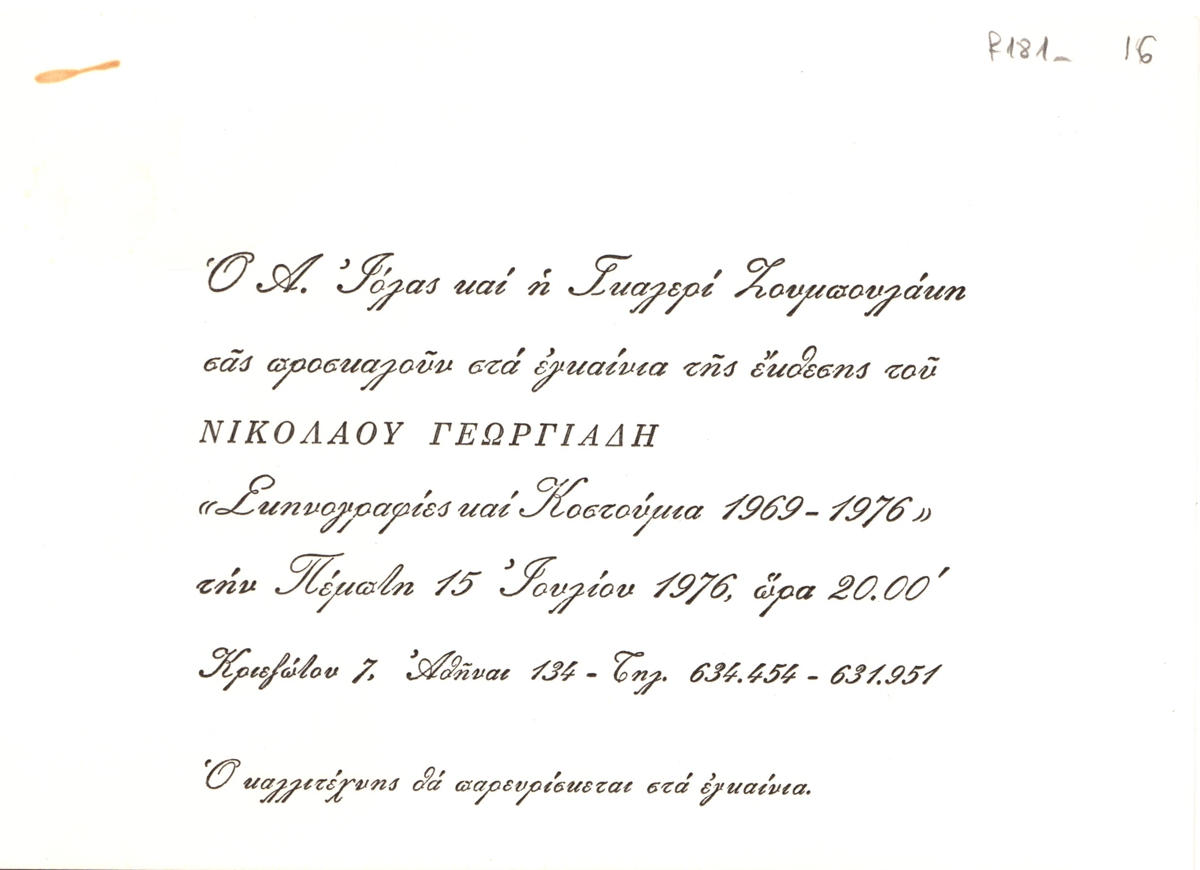 R181_ 16
Ὁ Α. Ἰόλας καί ἡ Γκαλερί Ζουμπουλάκη
σᾶς προσκαλοῦν στά ἐγκαίνια τῆς ἔκθεσης τοῦ
ΝΙΚΟΛΑΟΥ ΓΕΩΡΓΙΑΔΗ
«Σκηνογραφίες καί Κοστούμια 1969 - 1976»
τήν Πέμπτη 15 Ἰουλίου 1976, ὥρα 20.00΄
Κριεζώτου 7. Ἀθῆναι 134 - Τηλ. 634.454 - 631.951
Ὁ καλλιτέχνης θά παρευρίσκεται στά ἐγκαίνια.